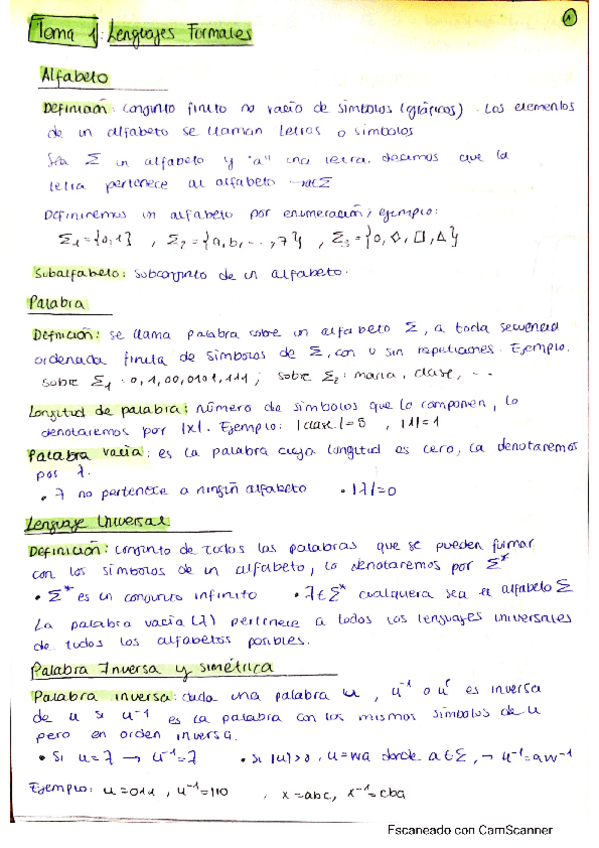 1
Tema 1: Lenguajes Formales
Alfabeto
Definición: conjunto finito no vacío de símbolos (gráficos). Los elementos
de un alfabeto se llaman letras o símbolos
Sea Σ un alfabeto y "a" una letra. decimos que la
letra pertenece al alfabeto → a∈Σ
Definiremos un alfabeto por enumeración, ejemplo:
Σ₁={0,1} , Σ₂={a,b,...,z} , Σ₃={0,◇,□,△}
Subalfabeto: subconjunto de un alfabeto.
Palabra
Definición: se llama palabra sobre un alfabeto Σ, a toda secuencia
ordenada finita de símbolos de Σ, con o sin repeticiones. Ejemplo.
sobre Σ₁: 0,1,00,0101,111; sobre Σ₂: maria, clase, ...
Longitud de palabra: número de símbolos que lo componen, lo
denotaremos por |x|. Ejemplo: |clase|=5 , |1|=1
Palabra vacía: es la palabra cuya longitud es cero, la denotaremos
por λ.
• λ no pertenece a ningún alfabeto • |λ|=0
Lenguaje Universal
Definición: conjunto de todas las palabras que se pueden formar
con los símbolos de un alfabeto, lo denotaremos por Σ*
• Σ* es un conjunto infinito • λ∈Σ* cualquiera sea el alfabeto Σ
La palabra vacía (λ) pertenece a todos los lenguajes universales
de todos los alfabetos posibles.
Palabra Inversa y simétrica
Palabra inversa: dada una palabra u, u⁻¹ o uʳ es inversa
de u si u⁻¹ es la palabra con los mismos símbolos de u
pero en orden inverso.
• Si u=λ → u⁻¹=λ • si |u|>0, u=wa donde a∈Σ, → u⁻¹=aw⁻¹
Ejemplo: u=011, u⁻¹=110 , x=abc, x⁻¹=cba
Escaneado con CamScanner